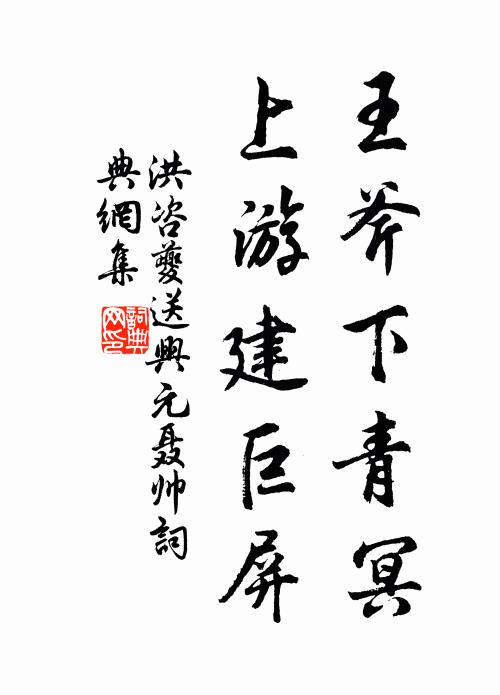 王斧下青冥
上游建巨屏
洪咨夔送興元聂帅詞
典網集
詞典网印